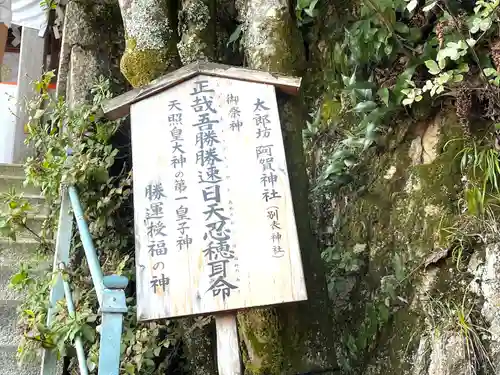 太郎坊 阿賀神社(別表神社)
御祭神
正哉吾勝勝速日天忍穂耳命
天照皇大神の第一皇子神
勝運授福の神